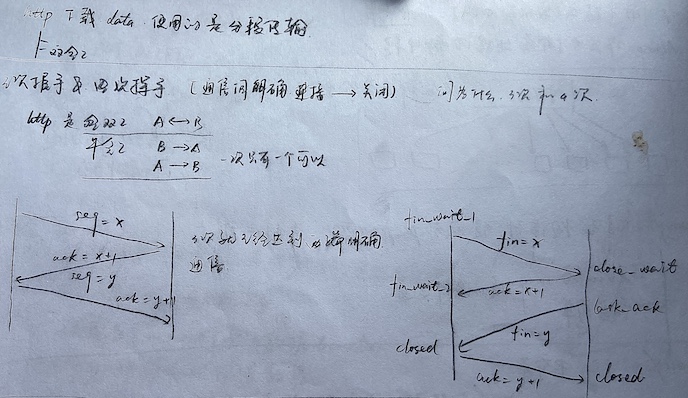 http 下载 data 使用的是分段传输
双全工
3次握手 & 四次挥手 (通信间明确 连接 → 关闭) 问为什么 3次 和 4次.
http 是 全双工 A ↔ B
半全工 B → A
A → B 一次只有一个可以
seq = x
ack = x+1
seq = y
ack = y+1
3次就已经达到 明确
通信
fin_wait_1
fin = x
close_wait
fin_wait_2
ack = x+1
last_ack
fin = y
closed
ack = y+1
closed